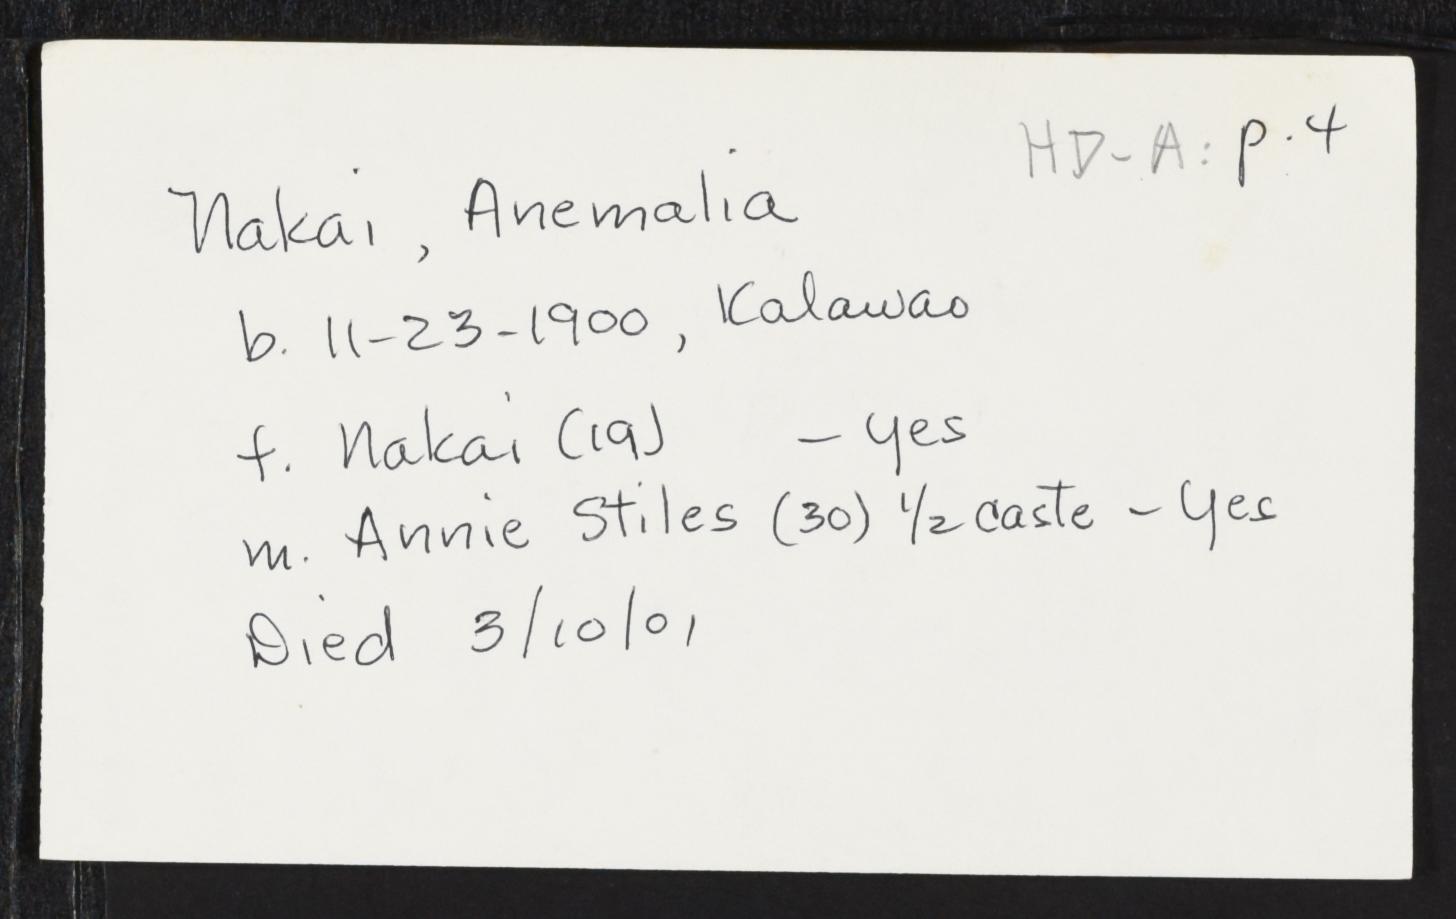 HD-A: p.4
Nakai, Anemalia
b. 11-23-1900, Kalawao
f. Nakai (19) - yes
m. Annie Stiles (30) 1/2 caste - Yes
Died 3/10/01